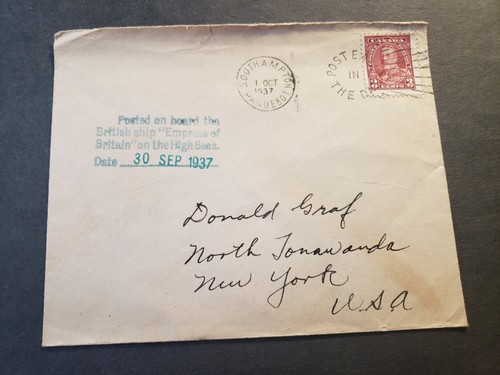 SOUTHAMPTON
1 OCT
1937
PAQUEBOT
POSTE
IN
THE
CANADA
3 CENTS 3
Posted on board the
British ship "Empress of
Britain" on the High Seas.
Date 30 SEP 1937
Donald Graf
North Tonawanda
New York
U.S.A